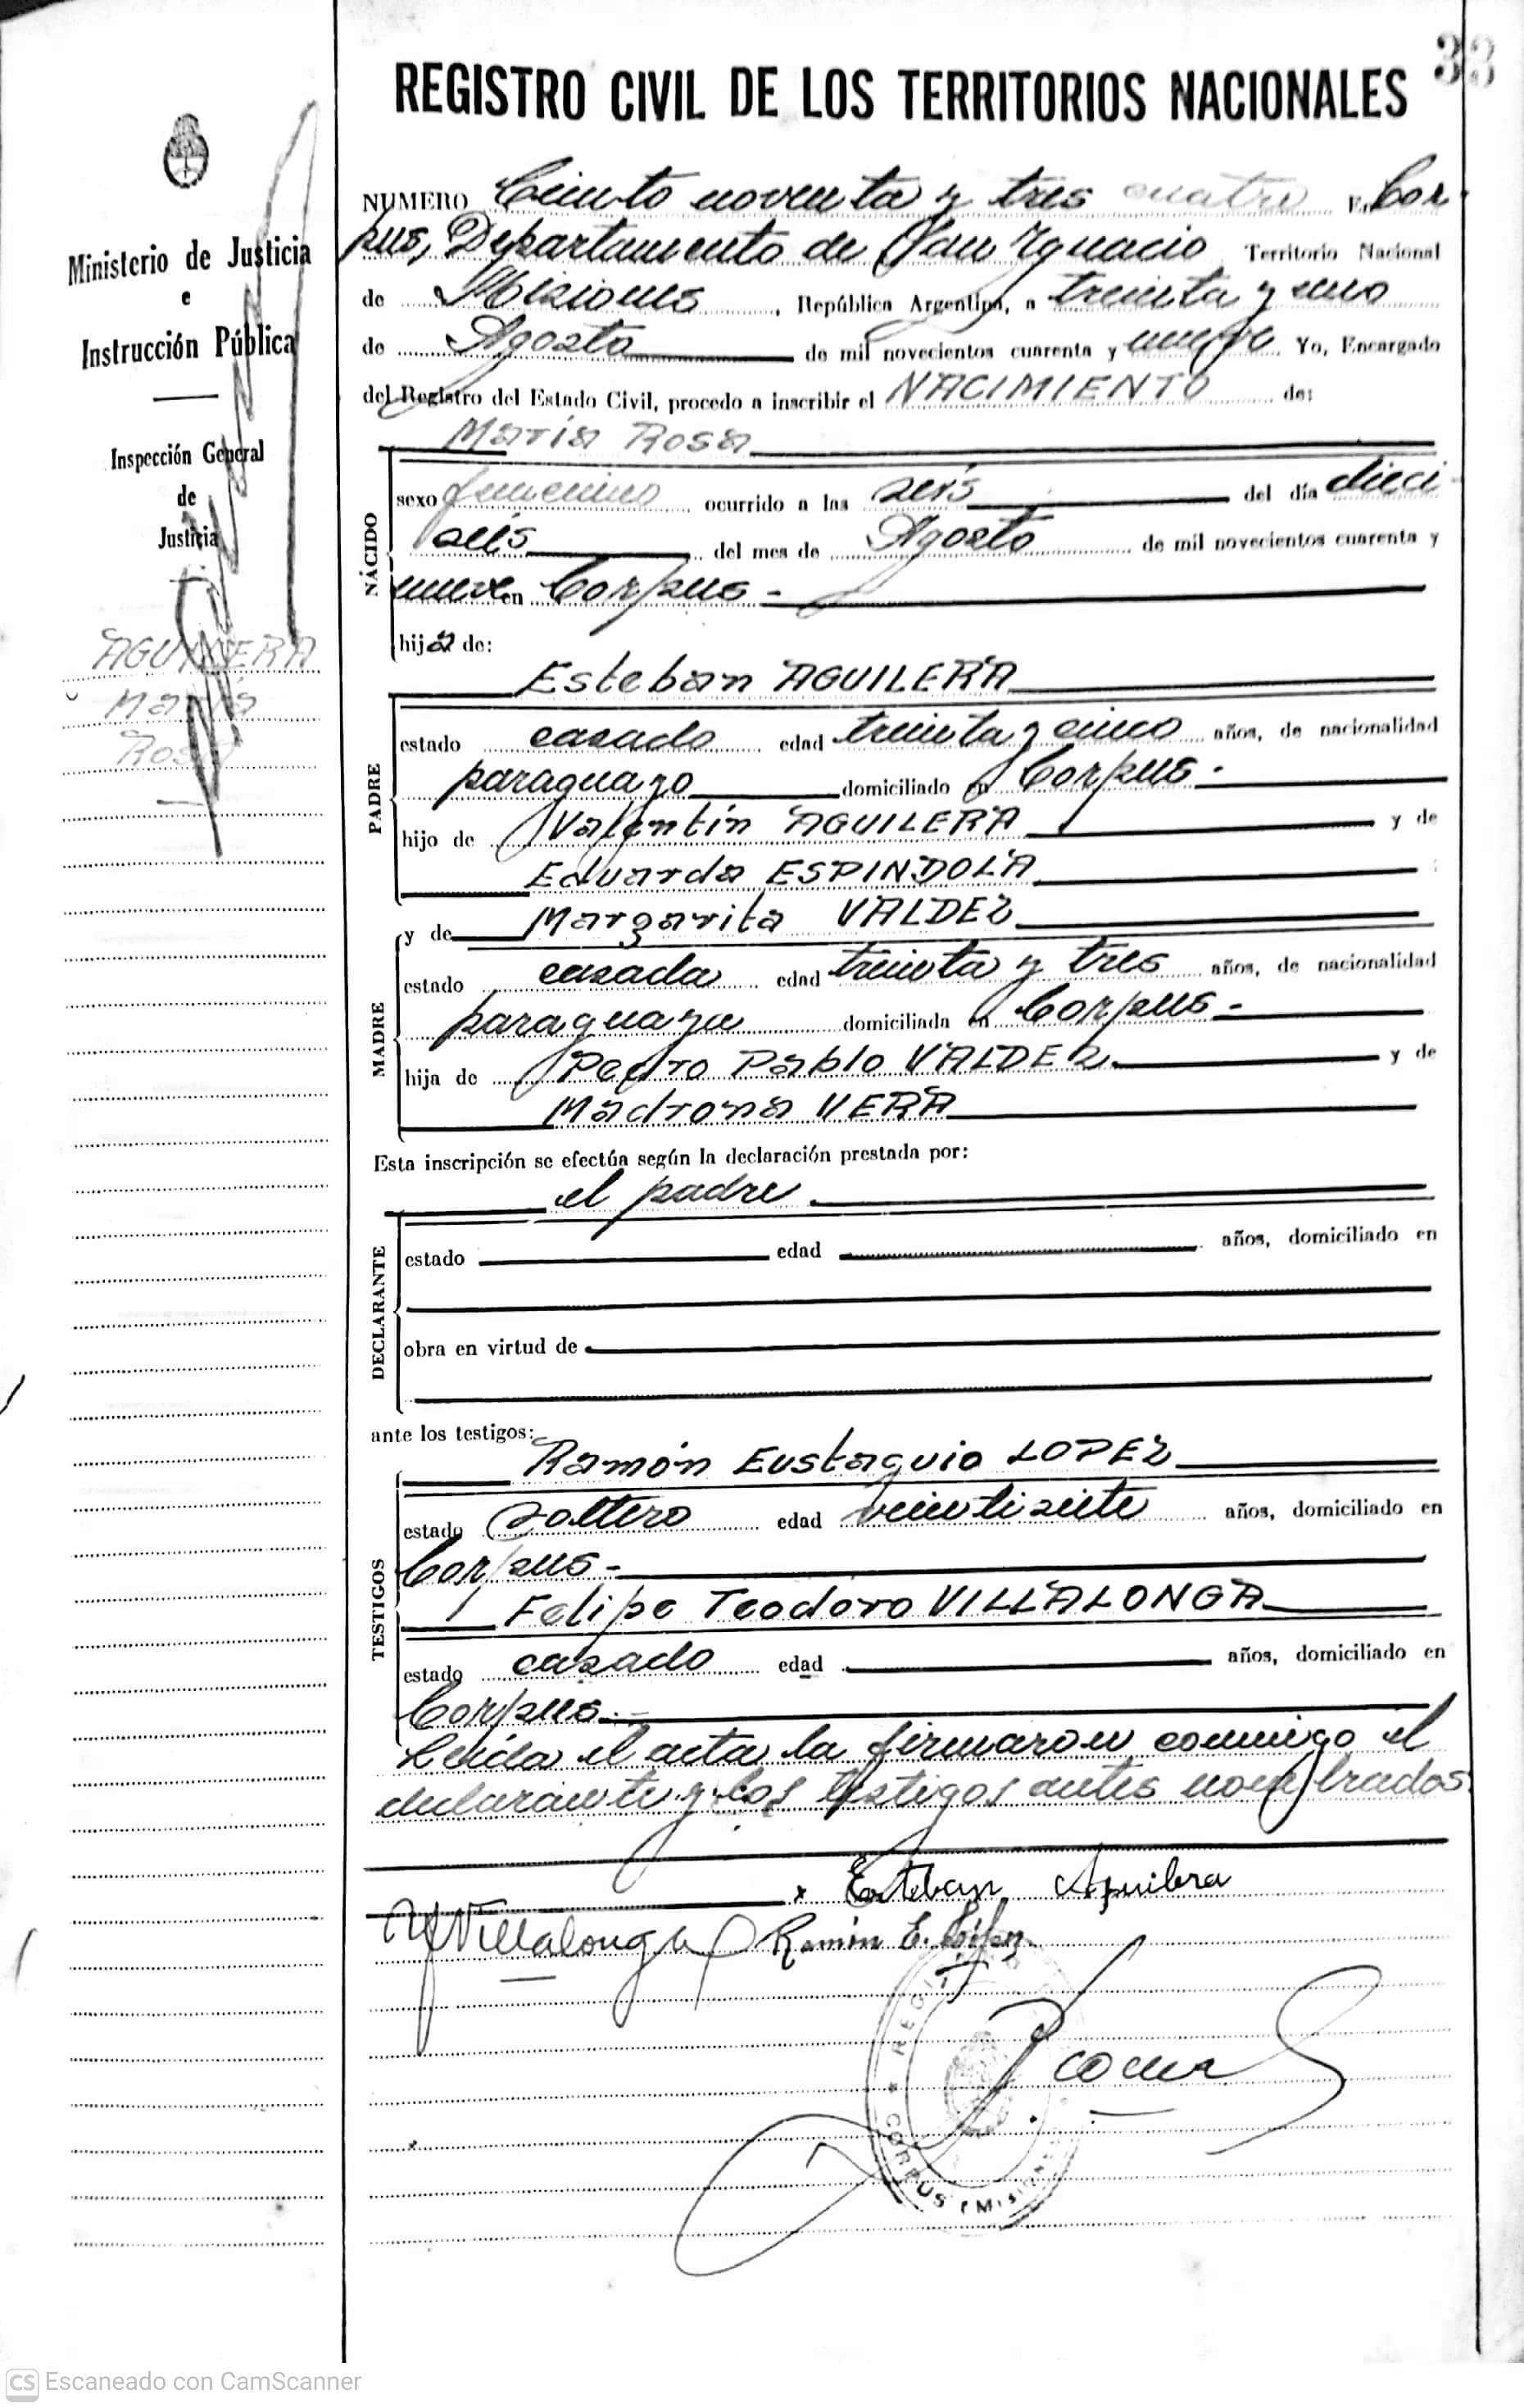 33
REGISTRO CIVIL DE LOS TERRITORIOS NACIONALES
Ministerio de Justicia
e
Instrucción Pública
Inspección General
de
Justicia
AGUILERA
María
Rosa
NUMERO Ciento noventa y tres cuatro En Cor-
pus, Departamento de San Ygnacio Territorio Nacional
de Misiones, República Argentina, a treinta y uno
de Agosto de mil novecientos cuarenta y nueve Yo, Encargado
del Registro del Estado Civil, procedo a inscribir el NACIMIENTO de:
María Rosa
NACIDO
sexo femenino ocurrido a las seis del día dieci
seis del mes de Agosto de mil novecientos cuarenta y
nueve en Corpus -
hija de:
Esteban AGUILERA
PADRE
estado casado edad treinta y cinco años, de nacionalidad
paraguayo domiciliado en Corpus -
hijo de Valentín AGUILERA y de
Eduarda ESPINDOLA
y de Margarita VALDEZ
MADRE
estado casada edad treinta y tres años, de nacionalidad
paraguaya domiciliada en Corpus -
hija de Pedro Pablo VALDEZ y de
Madrona VERA
Esta inscripción se efectúa según la declaración prestada por:
el padre
DECLARANTE
estado edad años, domiciliado en
obra en virtud de
ante los testigos:
Ramón Eustaquio LOPEZ
TESTIGOS
estado soltero edad veintisiete años, domiciliado en
Corpus -
Felipe Teodoro VILLALONGA
estado casado edad años, domiciliado en
Corpus. -
Leida el acta la firmaron conmigo el
declarante y los testigos antes nombrados
Esteban Aguilera
Villalonga Ramón E.
REGI
CORPUS (Misiones
CS Escaneado con CamScanner